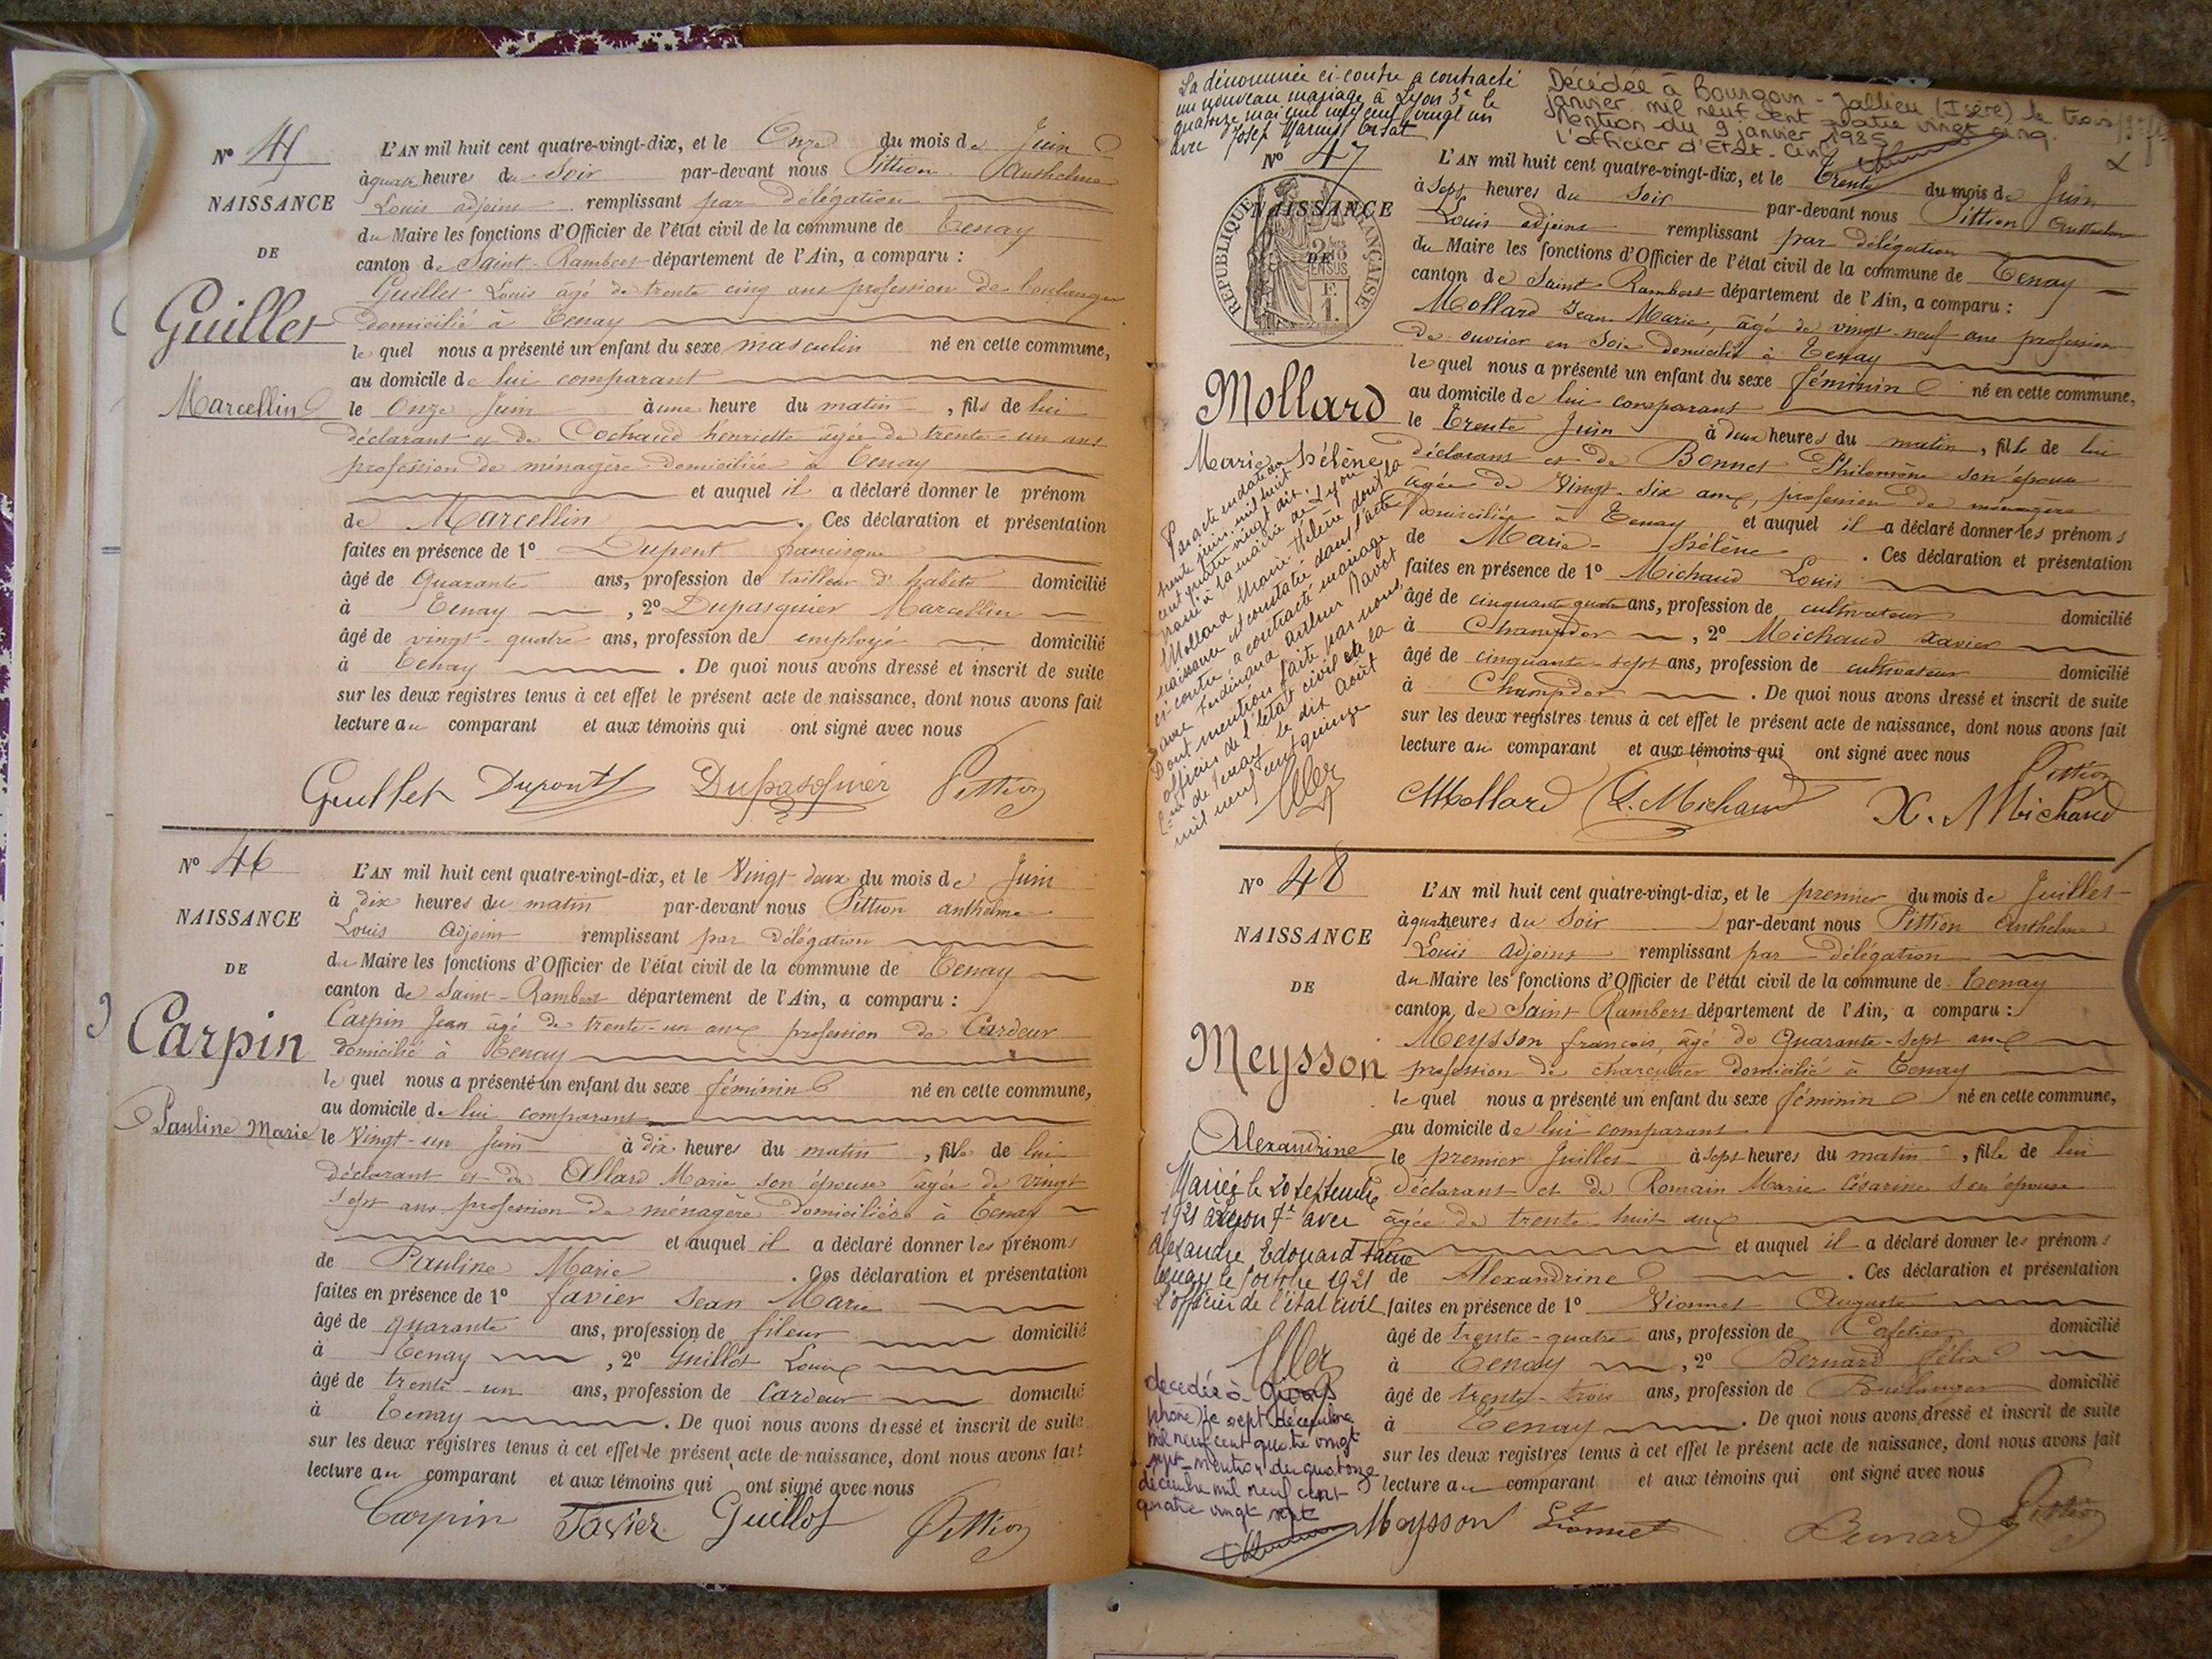 N° 45
NAISSANCE
DE
Guillet
Marcellin
L'AN mil huit cent quatre-vingt-dix, et le Onze du mois de Juin
à quatre heures du Soir par-devant nous Pittion Anthelme
Louis adjoint remplissant par délégation
du Maire les fonctions d'Officier de l'état civil de la commune de Tenay
canton de Saint-Rambert département de l'Ain, a comparu :
Guillet Louis âgé de trente cinq ans profession de boulanger
domicilié à Tenay
le quel nous a présenté un enfant du sexe masculin né en cette commune,
au domicile de lui comparant
le Onze Juin à une heure du matin, fils de lui
déclarant et de Cochaud henriette âgée de trente-un ans
profession de ménagère domiciliée à Tenay
et auquel il a déclaré donner le prénom
de Marcellin. Ces déclaration et présentation
faites en présence de 1° Dupont francisque
âgé de Quarante ans, profession de tailleur d'habits domicilié
à Tenay, 2° Dupasquier Marcellin
âgé de vingt-quatre ans, profession de employé domicilié
à Tenay. De quoi nous avons dressé et inscrit de suite
sur les deux registres tenus à cet effet le présent acte de naissance, dont nous avons fait
lecture au comparant et aux témoins qui ont signé avec nous
Guillet Dupont Dupasquier Pittion
N° 46
NAISSANCE
DE
Carpin
Pauline Marie
L'AN mil huit cent quatre-vingt-dix, et le Vingt deux du mois de Juin
à dix heures du matin par-devant nous Pittion anthelme
Louis Adjoint remplissant par délégation
du Maire les fonctions d'Officier de l'état civil de la commune de Tenay
canton de Saint-Rambert département de l'Ain, a comparu :
Carpin Jean âgé de trente-un ans profession de Cardeur
domicilié à Tenay
le quel nous a présenté un enfant du sexe féminin né en cette commune,
au domicile de lui comparant
le Vingt-un Juin à dix heures du matin, fille de lui
déclarant et de Allard Marie son épouse âgée de vingt
sept ans profession de ménagère domiciliée à Tenay
et auquel il a déclaré donner les prénoms
de Pauline Marie. Ces déclaration et présentation
faites en présence de 1° favier Jean Marie
âgé de quarante ans, profession de fileur domicilié
à Tenay, 2° Guillot Louis
âgé de trente-un ans, profession de Cardeur domicilié
à Tenay. De quoi nous avons dressé et inscrit de suite
sur les deux registres tenus à cet effet le présent acte de naissance, dont nous avons fait
lecture au comparant et aux témoins qui ont signé avec nous
Carpin Favier Guillot Pittion
La dénommée ci-contre a contracté
un nouveau mariage à Lyon 3e le
quatorze mai mil neuf cent vingt un
avec Josef Marius Orsat
Décédée à Bourgoin-Jallieu (Isère) le trois
janvier mil neuf cent quatre vingt cinq.
Mention du 9 janvier 1985
l'officier d'Etat-Civil
N° 47
NAISSANCE
DE
RÉPUBLIQUE FRANÇAISE
Mollard
Marie Hélène
Par acte en date du
trente juin mil huit
cent quatre vingt dix,
passé à la mairie de Lyon
Mollard Marie Hélène dont la
naissance est constatée dans l'acte
ci-contre a contracté mariage
avec Ferdinand Arthur Ravot
Dont mention faite par nous
officier de l'état civil de la
de Tenay le dix Août
mil neuf cent quinze
L'AN mil huit cent quatre-vingt-dix, et le Trente du mois de Juin
à Sept heures du Soir par-devant nous Pittion Anthelme
Louis adjoint remplissant par délégation
du Maire les fonctions d'Officier de l'état civil de la commune de Tenay
canton de Saint-Rambert département de l'Ain, a comparu :
Mollard Jean Marie, âgé de vingt-neuf ans profession
de ouvrier en Soie domicilié à Tenay
le quel nous a présenté un enfant du sexe féminin né en cette commune,
au domicile de lui comparant
le Trente Juin à deux heures du matin, fille de lui
déclarant et de Bonnet Philomène son épouse
âgée de Vingt-Six ans, profession de ménagère
domiciliée à Tenay et auquel il a déclaré donner les prénoms
de Marie-Hélène. Ces déclaration et présentation
faites en présence de 1° Michaud Louis
âgé de cinquante quatre ans, profession de cultivateur domicilié
à Champdor, 2° Michaud Xavier
âgé de cinquante-sept ans, profession de cultivateur domicilié
à Champdor. De quoi nous avons dressé et inscrit de suite
sur les deux registres tenus à cet effet le présent acte de naissance, dont nous avons fait
lecture au comparant et aux témoins qui ont signé avec nous
Pittion
Mollard L. Michaud X. Michaud
N° 48
NAISSANCE
DE
Meysson
Alexandrine
Mariée le 20 septembre
1921 à Lyon 7e avec
Alexandre Edouard Faure
Tenay le 5 octobre 1921
L'officier de l'état civil
décédée à
le sept décembre
mil neuf cent quatre vingt
sept - mention du quatorze
décembre mil neuf cent
quatre vingt sept
L'AN mil huit cent quatre-vingt-dix, et le premier du mois de Juillet
à quatre heures du Soir par-devant nous Pittion Anthelme
Louis Adjoint remplissant par délégation
du Maire les fonctions d'Officier de l'état civil de la commune de Tenay
canton de Saint Rambert département de l'Ain, a comparu :
Meysson francois, âgé de Quarante-Sept ans
profession de charcutier domicilié à Tenay
le quel nous a présenté un enfant du sexe féminin né en cette commune,
au domicile de lui comparant
le premier Juillet à sept heures du matin, fille de lui
déclarant et de Romain Marie Césarine son épouse
âgée de trente-huit ans
et auquel il a déclaré donner les prénoms
de Alexandrine. Ces déclaration et présentation
faites en présence de 1° Vionnet Auguste
âgé de trente-quatre ans, profession de Cafetier domicilié
à Tenay, 2° Bernard félix
âgé de trente-trois ans, profession de Boulanger domicilié
à Tenay. De quoi nous avons dressé et inscrit de suite
sur les deux registres tenus à cet effet le présent acte de naissance, dont nous avons fait
lecture au comparant et aux témoins qui ont signé avec nous
Meysson Vionnet Bernard Pittion